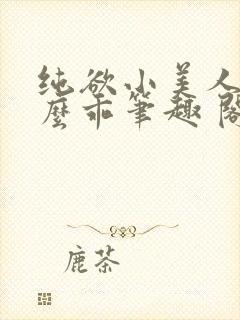 纯欲小美人
麼乖笔趣阁
鹿茶